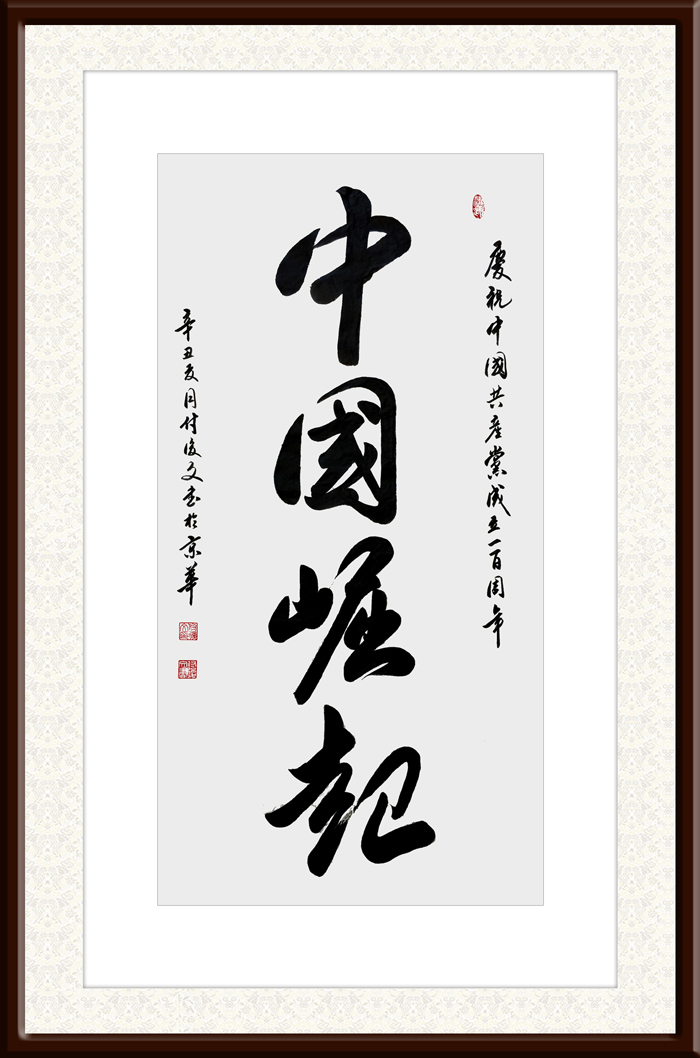 慶祝中國共產黨成立一百周年
中國崛起
辛丑夏月付後文書於京華